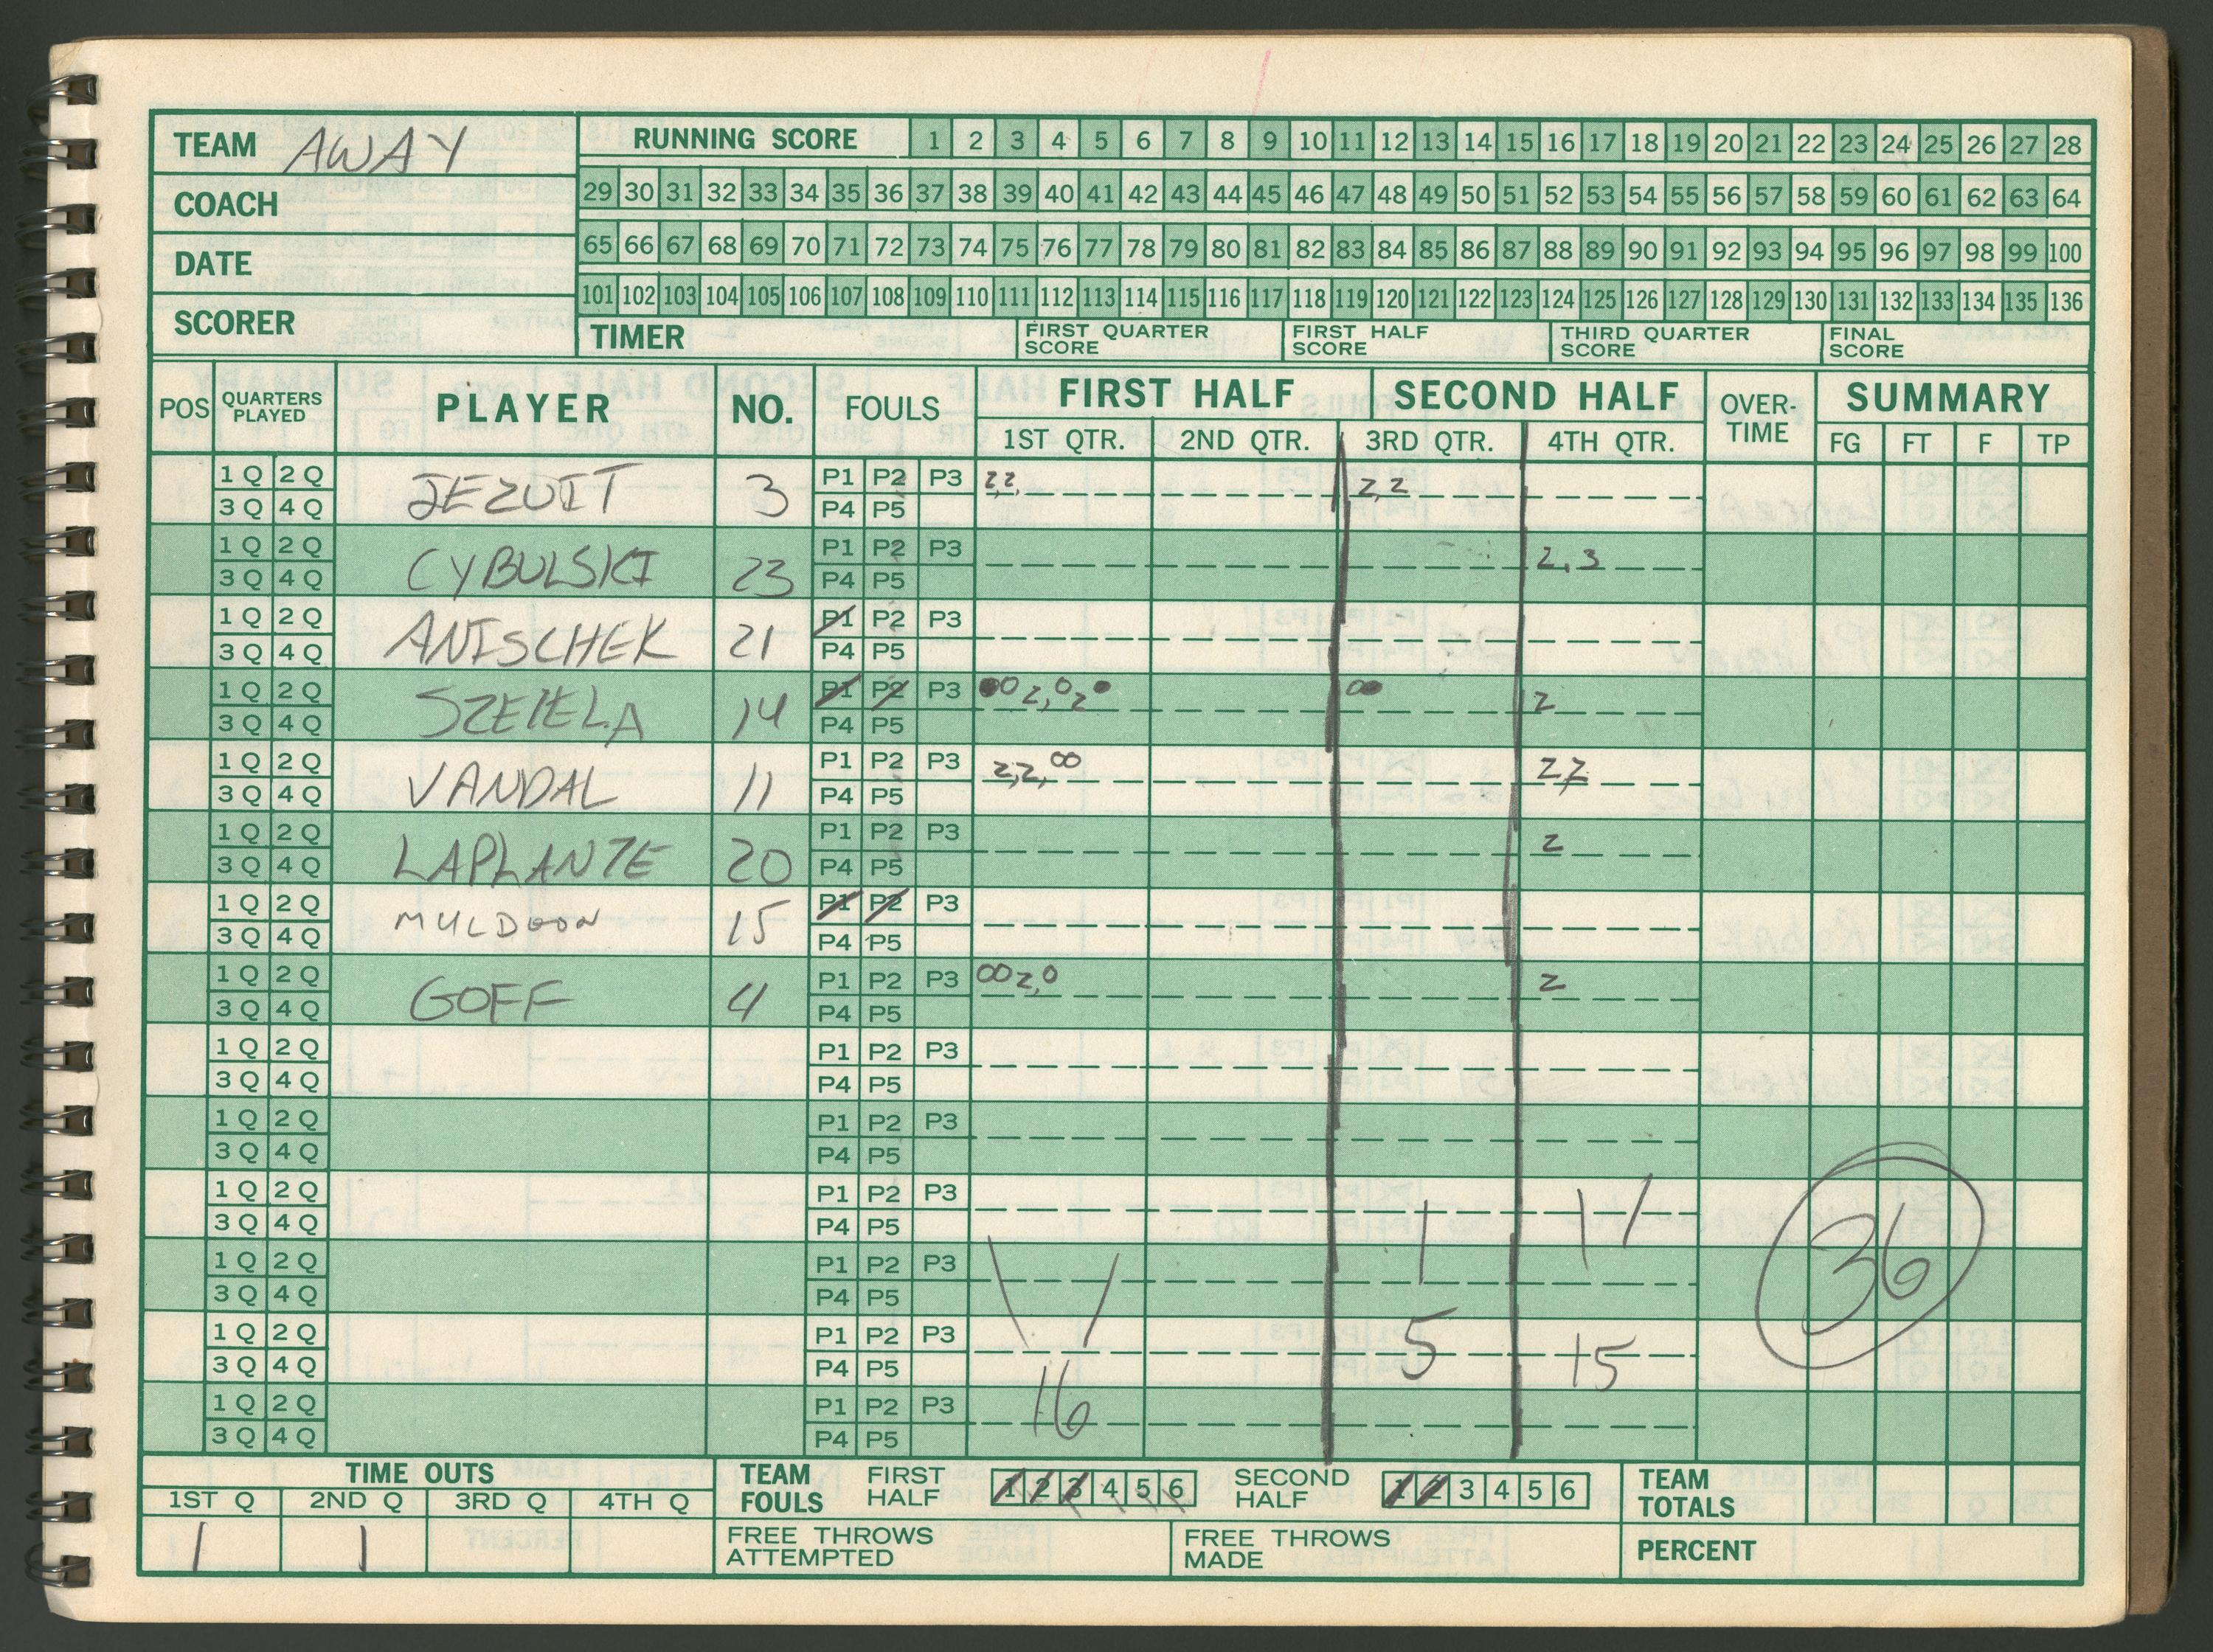 TEAM AWAY
COACH
DATE
SCORER
RUNNING SCORE 1 2 3 4 5 6 7 8 9 10 11 12 13 14 15 16 17 18 19 20 21 22 23 24 25 26 27 28
29 30 31 32 33 34 35 36 37 38 39 40 41 42 43 44 45 46 47 48 49 50 51 52 53 54 55 56 57 58 59 60 61 62 63 64
65 66 67 68 69 70 71 72 73 74 75 76 77 78 79 80 81 82 83 84 85 86 87 88 89 90 91 92 93 94 95 96 97 98 99 100
101 102 103 104 105 106 107 108 109 110 111 112 113 114 115 116 117 118 119 120 121 122 123 124 125 126 127 128 129 130 131 132 133 134 135 136
TIMER FIRST QUARTER SCORE FIRST HALF SCORE THIRD QUARTER SCORE FINAL SCORE
POS QUARTERS PLAYED PLAYER NO. FOULS FIRST HALF SECOND HALF OVER-TIME SUMMARY
1ST QTR. 2ND QTR. 3RD QTR. 4TH QTR. FG FT F TP
1 Q 2 Q JEZUIT 3 P1 P2 P3 2,2, 2,2
3 Q 4 Q P4 P5
1 Q 2 Q CYBULSKI 23 P1 P2 P3 2,3
3 Q 4 Q P4 P5
1 Q 2 Q ANISCHEK 21 P1 P2 P3
3 Q 4 Q P4 P5
1 Q 2 Q SZEIELA 14 P1 P2 P3 ●O 2,O 2● O● 2
3 Q 4 Q P4 P5
1 Q 2 Q VANDAL 11 P1 P2 P3 2,2,OO 2,2
3 Q 4 Q P4 P5
1 Q 2 Q LAPLANTE 20 P1 P2 P3 2
3 Q 4 Q P4 P5
1 Q 2 Q MULDOON 15 P1 P2 P3
3 Q 4 Q P4 P5
1 Q 2 Q GOFF 4 P1 P2 P3 OO 2,O 2
3 Q 4 Q P4 P5
1 Q 2 Q P1 P2 P3
3 Q 4 Q P4 P5
1 Q 2 Q P1 P2 P3
3 Q 4 Q P4 P5
1 Q 2 Q P1 P2 P3
3 Q 4 Q P4 P5
1 Q 2 Q P1 P2 P3 36
3 Q 4 Q P4 P5
1 Q 2 Q P1 P2 P3 5 15
3 Q 4 Q P4 P5
1 Q 2 Q P1 P2 P3 16
3 Q 4 Q P4 P5
TIME OUTS
1ST Q 2ND Q 3RD Q 4TH Q
1 1
TEAM FOULS FIRST HALF 1 2 3 4 5 6 SECOND HALF 1 2 3 4 5 6
FREE THROWS ATTEMPTED FREE THROWS MADE
TEAM TOTALS
PERCENT